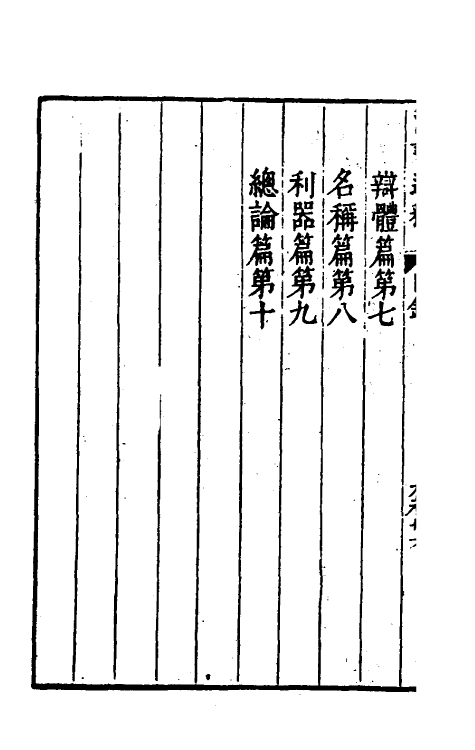 辯體篇第七
名稱篇第八
利器篇第九
總論篇第十